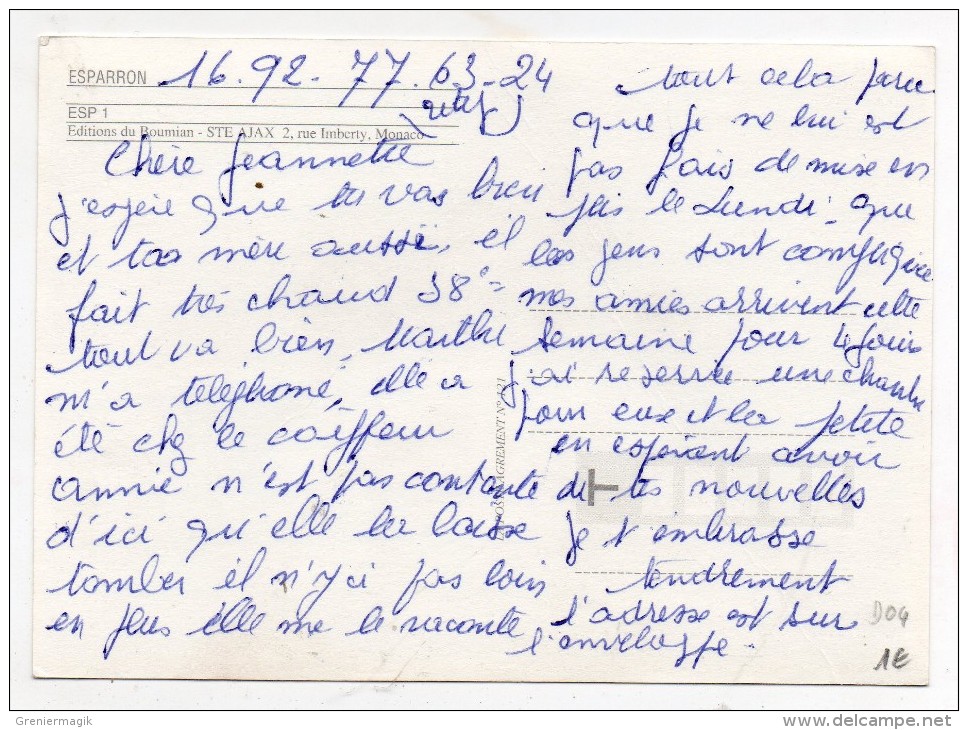 ESPARRON 16.92. 77.63-24
ESP 1
Editions du Boumian - STE AJAX 2, rue Imberty, Monaco
Chère Jeannette
j'espère que tu vas bien
et ta mère aussi, il
fait très chaud 38°
tout va bien, Marthe
m'a téléphoné, elle a
été chez le coiffeur
annie n'est pas contante
d'ici qu'elle la laisse
tomber il n'y a pas loin
en plus elle me le raconte
tout cela parce
que je ne lui est
pas fais de mise en
plis le Lundi, que
les gens sont compliqué
mes amies arrivent cette
semaine pour 4 jours
j'ai reservée une chambre
pour eux et la petite
en esperant avoir
de tes nouvelles
je t'embrasse
tendrement
l'adresse est sur
l'enveloppe.
AGREMENT N° 221
D04
1€
Greniermagik
delcampe.net